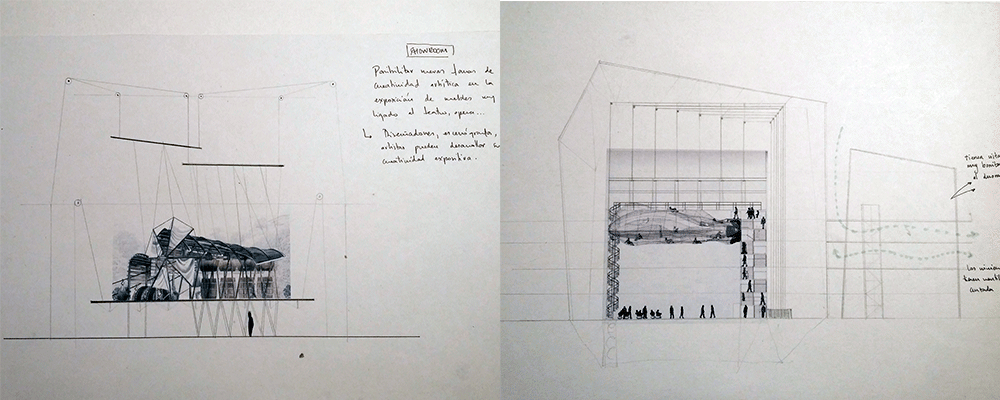 SHOWROOM
Posibilitar nuevas formas de
creatividad artística en la
exposición de muebles muy
ligado al teatro, opera...
↳ Diseñadores, escenógrafos,
artistas pueden desarrollar su
creatividad expositiva.
tienen vistas
muy bonitas